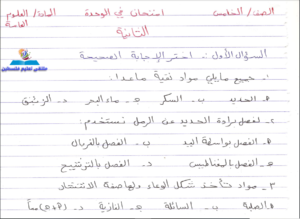 الصف/ الخامس امتحان في الوحدة المادة/ العلوم العامة
الثانية
ملتقى تعليم فلسطين
السؤال الأول: اختر الإجابة الصحيحة
١. جميع مايلي مواد نقية ماعدا:
أ. الحديد ب. السكر ج. ماء البحر د. الزئبق
٢. لفصل برادة الحديد عن الرمل نستخدم:
أ. الفصل بواسطة اليد ب. الفصل بالغربال
ج. الفصل بالمغناطيس د. الفصل بالترشيح
٣. مواد تأخذ شكل الوعاء ولها صفة الانتشار
أ. الصلبة ب. السائلة ج. الغازية د. (ب+ج) معاً